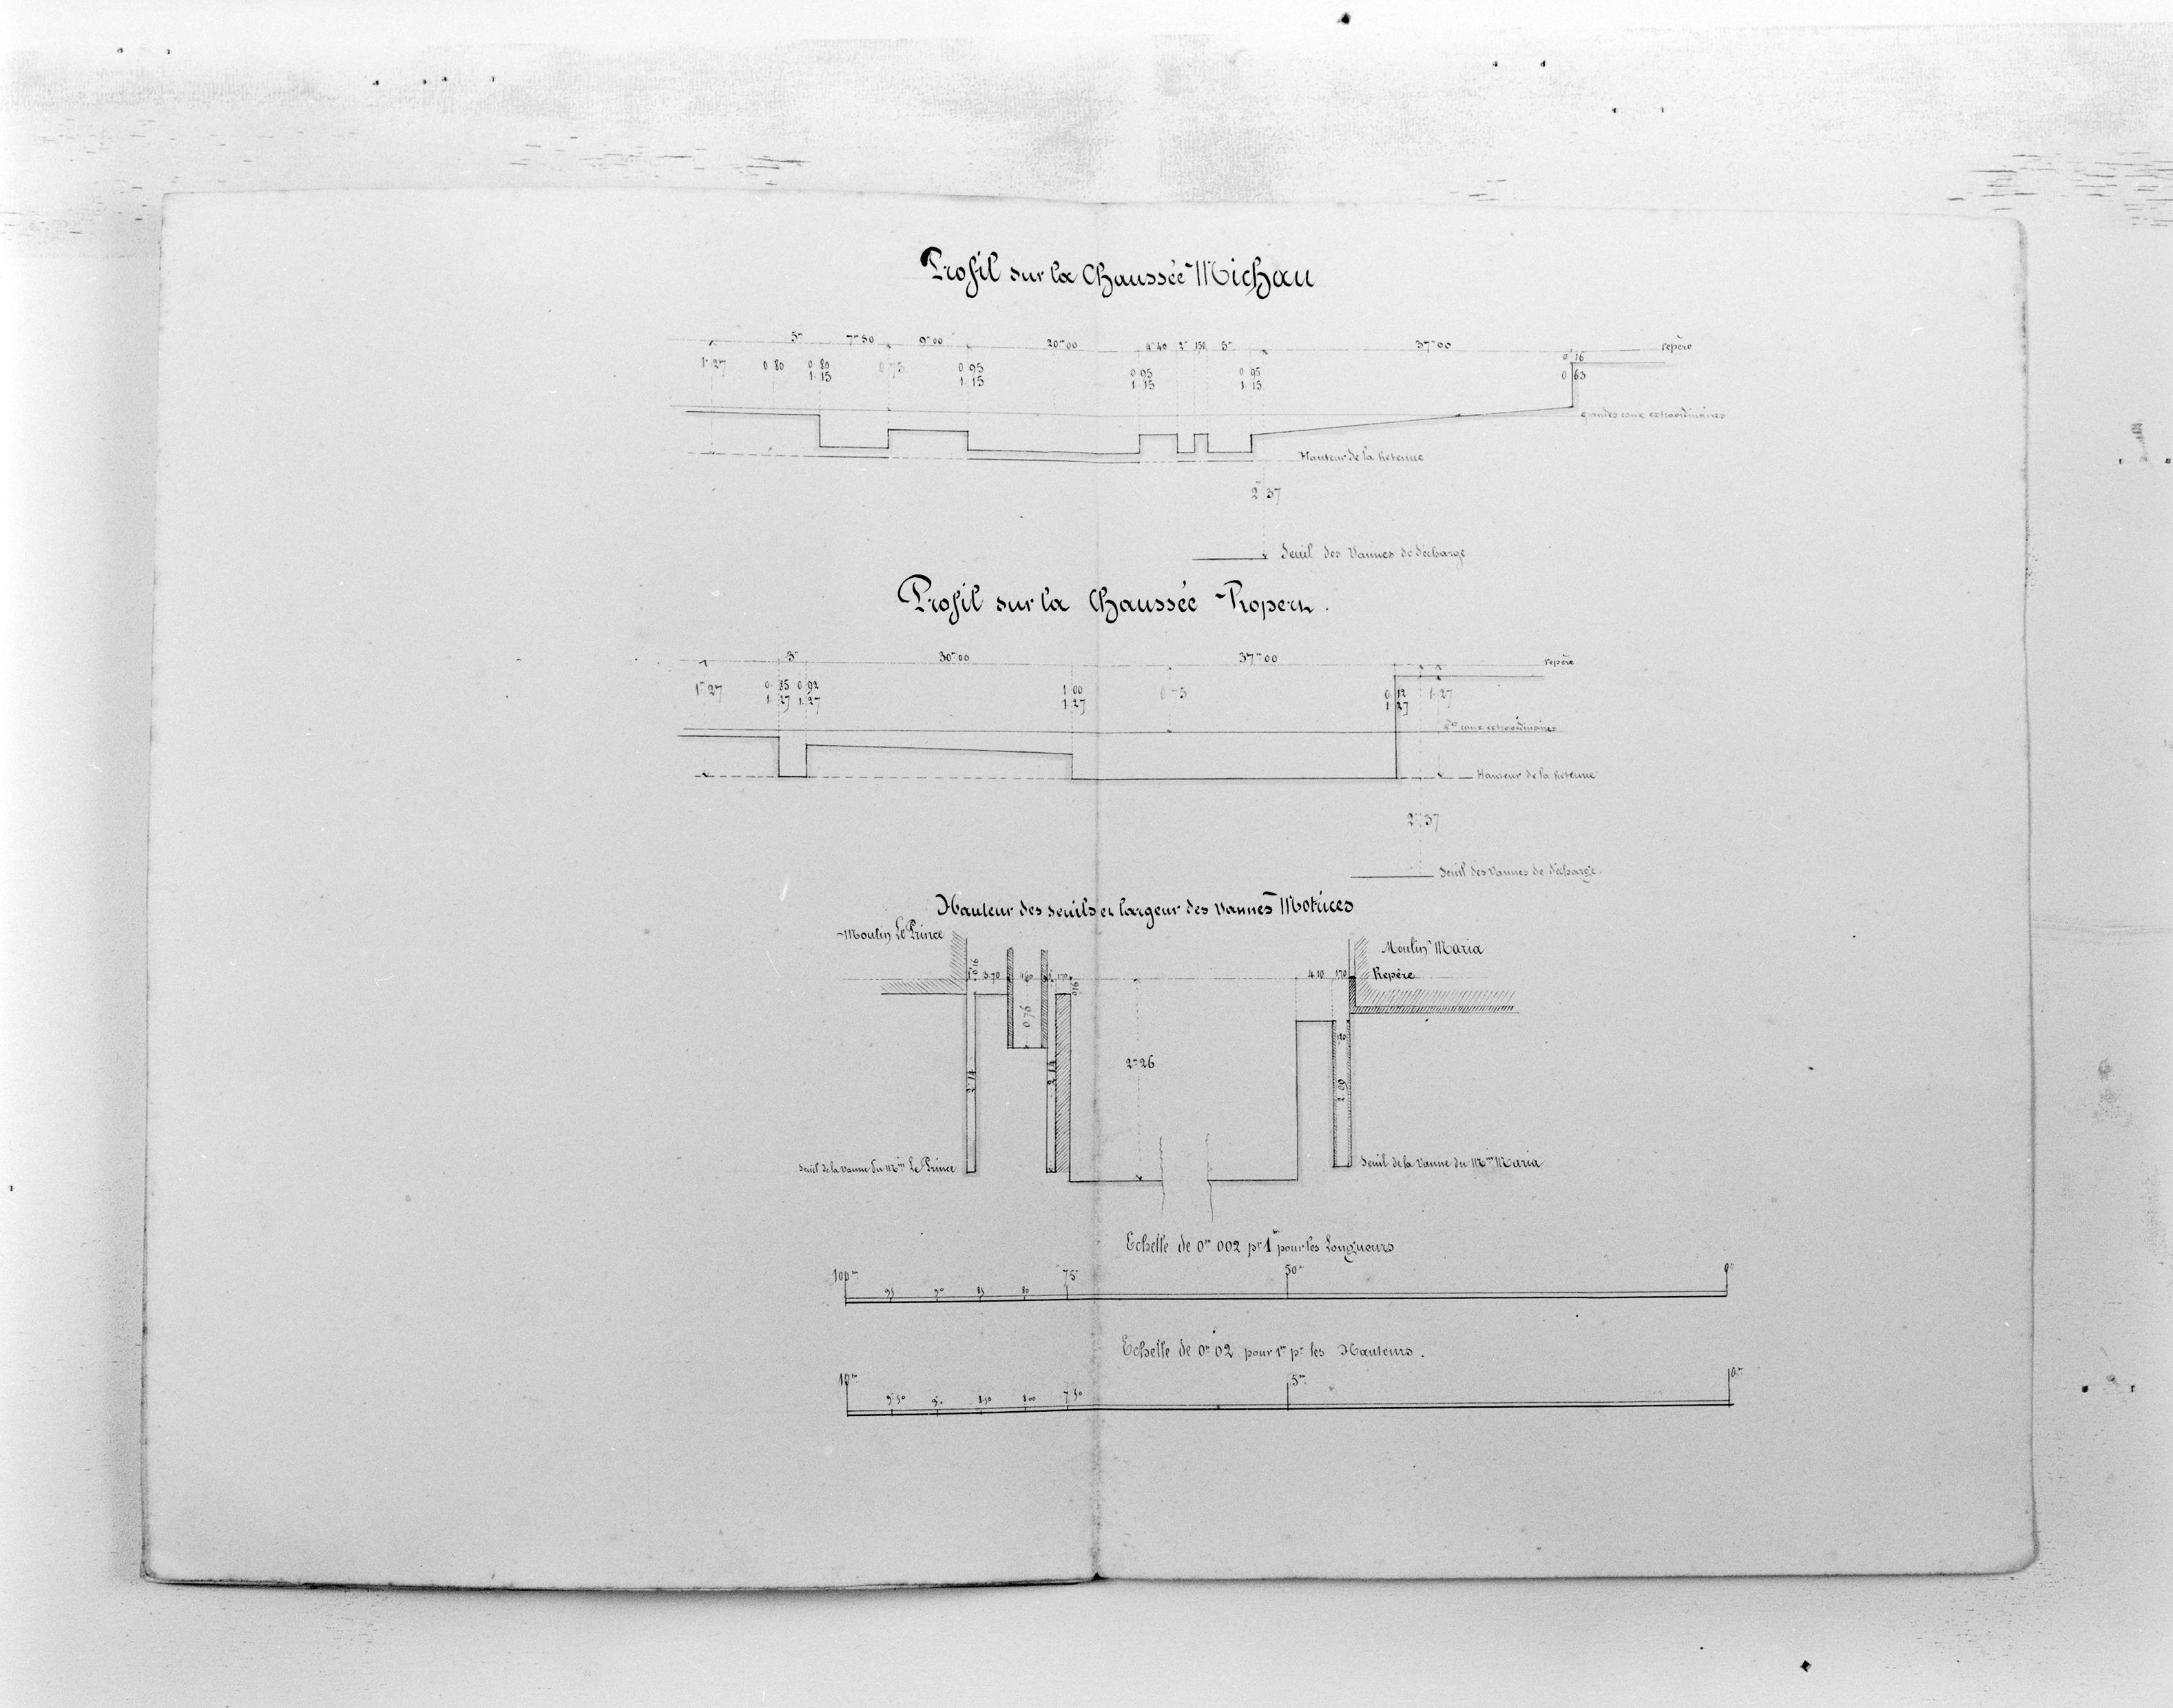 Profil sur la Chaussée Michau
5m 7m50 9m00 20m00 4m40 2m 1.50 5m 37m00 repère
1m27 0.80 0.80 0.75 0.95 0.95 0.95 0.16
1.15 1.15 1.15 1.15 0.63
grandes eaux extraordinaires
Hauteur de la Retenue
2m37
Seuil des Vannes de décharge
Profil sur la Chaussée Ropers.
3m 30m00 37m00 repère
1m27 0.85 0.92 1.00 0.75 0.12 1.27
1.27 1.27 1.27 1.27
eaux extraordinaires
Hauteur de la Retenue
2m37
Seuil des Vannes de décharge.
Hauteur des seuils et largeur des Vannes Motrices
Moulin Le Prince
Moulin Maria
0.16 3.70 1.70 4.10 1.70 Repère
0.16
0.76
2m26
2.09
Seuil de la Vanne du Min Le Prince
Seuil de la Vanne du Min Maria
Echelle de 0m002 pr 1m pour les Longueurs
100m 95 90 85 80 75m 50m 0m
Echelle de 0m02 pour 1m pr les Hauteurs.
10m 9.50 9. 8.50 8.00 7.50 5m 0m